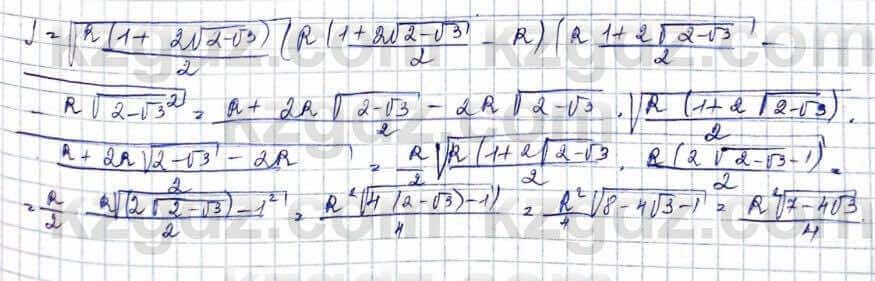 S = √(R(1 + 2√(2-√3))/2 (R(1 + 2√(2-√3))/2 - R)(R (1 + 2√(2-√3))/2 -
- R√(2-√3)²) = (R + 2R√(2-√3) - 2R√(2-√3))/2 · √(R(1+2√(2-√3))/2 ·
(R + 2R√(2-√3) - 2R)/2 = R/2 √(R(1+2√(2-√3))/2 · R(2√(2-√3)-1)/2 =
= R/2 · R√((2√(2-√3))-1²)/2 = R²√(4(2-√3)-1)/4 = R²/4 √(8-4√3-1) = R²√(7-4√3)/4
kzgdz.com